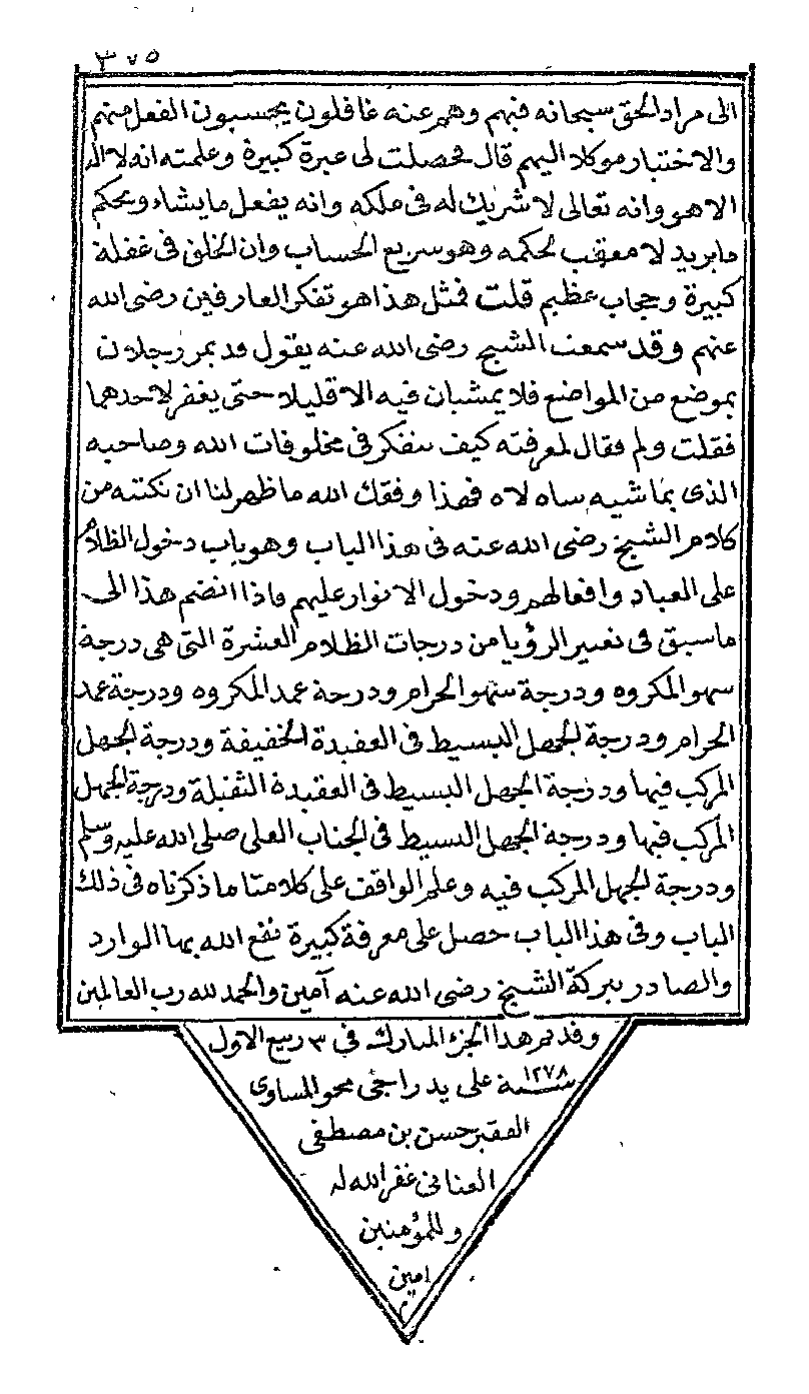 ٣٧٥
الى مراد الحق سبحانه فيهم وهم عنه غافلون يحتسبون الفعل منهم
والاختيار موكلا اليهم قال فحصلت لى عبرة كبيرة وعلمته انه لا اله
الا هو وانه تعالى لا شريك له فى ملكه وانه يفعل ما يشاء ويحكم
ما يريد لا معقب لحكمه وهو سريع الحساب وان الخلق فى غفلة
كبيرة وحجاب عظيم قلت فمثل هذا هو تفكر العارفين رضى الله
عنهم وقد سمعت الشيخ رضى الله عنه يقول قد يمر رجلان
بموضع من المواضع فلا يمشيان فيه الا قليلا حتى يغفر لاحدهما
فقلت ولم فقال لمعرفته كيف يتفكر فى مخلوقات الله وصاحبه
الذى يماشيه ساه لاه فهذا وفقك الله ما ظهر لنا ان نكتبه من
كلام الشيخ رضى الله عنه فى هذا الباب وهو باب دخول الظلام
على العباد وافعالهم ودخول الانوار عليهم فاذا انضم هذا الى
ما سبق فى تعبير الرؤيا من درجات الظلام العشرة التى هى درجة
سهو المكروه ودرجة سهو الحرام ودرجة عمد المكروه ودرجة عمد
الحرام ودرجة الجهل البسيط فى العقيدة الخفيفة ودرجة الجهل
المركب فيها ودرجة الجهل البسيط فى العقيدة الثقيلة ودرجة الجهل
المركب فيها ودرجة الجهل البسيط فى الجناب العلى صلى الله عليه وسلم
ودرجة الجهل المركب فيه وعلم الواقف على كلامنا ما ذكرناه فى ذلك
الباب وفى هذا الباب حصل على معرفة كبيرة نفع الله بها الوارد
والصادر ببركة الشيخ رضى الله عنه آمين والحمد لله رب العالمين
وقد تم هذا الجزء المبارك فى ٣ ربيع الاول
سنة ١٢٧٨ على يد راجى محو المساوى
الفقير حسن بن مصطفى
العنانى غفر الله له
وللمؤمنين
امين